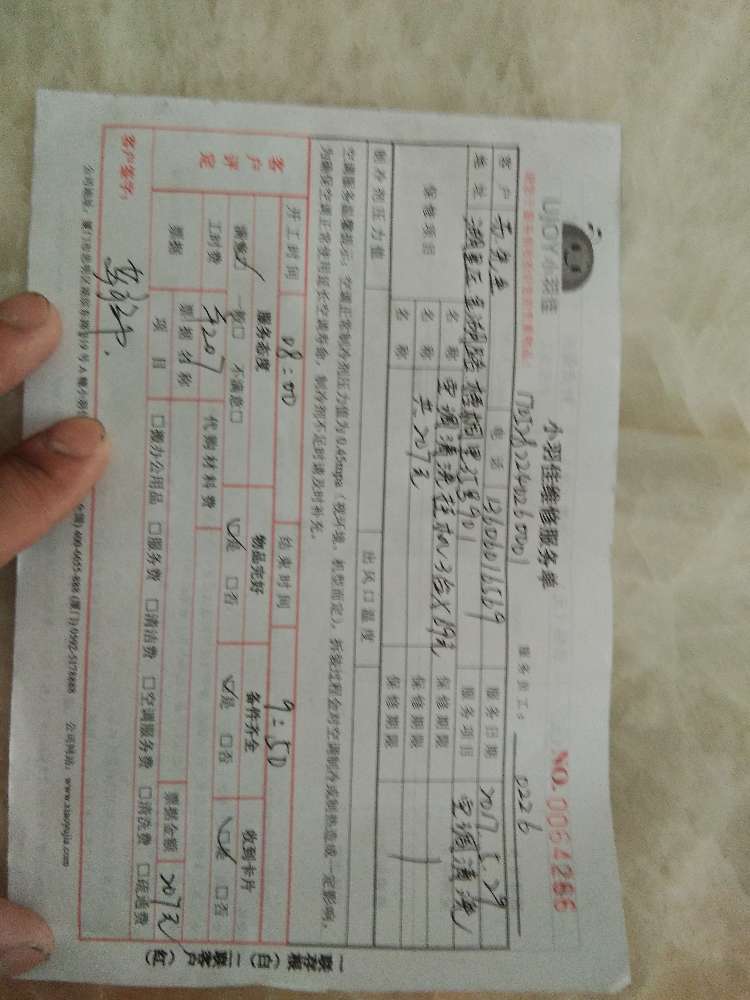 UJOY小羽佳
小羽佳维修服务单
NO. 0064266
服务员工: 0226
客户
电话 13606016569
服务日期 2017.5.29
地址
服务项目 空调清洗
保修项目
名称 空调清洗挂机3台×69元
保修期限
名称 共207元
保修期限
名称
保修期限
制冷剂压力值
出风口温度
空调服务温馨提示:空调正常制冷剂压力值为0.45mpa(视环境、机型而定),拆装过程会对空调制冷或制热造成一定影响,
为确保空调正常使用延长空调寿命,制冷剂不足时请及时补充。
客户评定
开工时间 08:00
结束时间 9:50
服务态度
物品完好
备件齐全
收到卡片
满意☑ 一般□ 不满意□
☑是 □否
☑是 □否
☑是 □否
工时费 共207
代购材料费
票据
票据名称
票据金额 207元
项目
□搬办公用品 □服务费 □清洁费 □空调服务费 □清洗费 □疏通费
客户签字:
400-6655-888 (厦门) 0592-5178888
公司网站:www.xiaoyujia.com
一联存根(白) 二联客户(红)